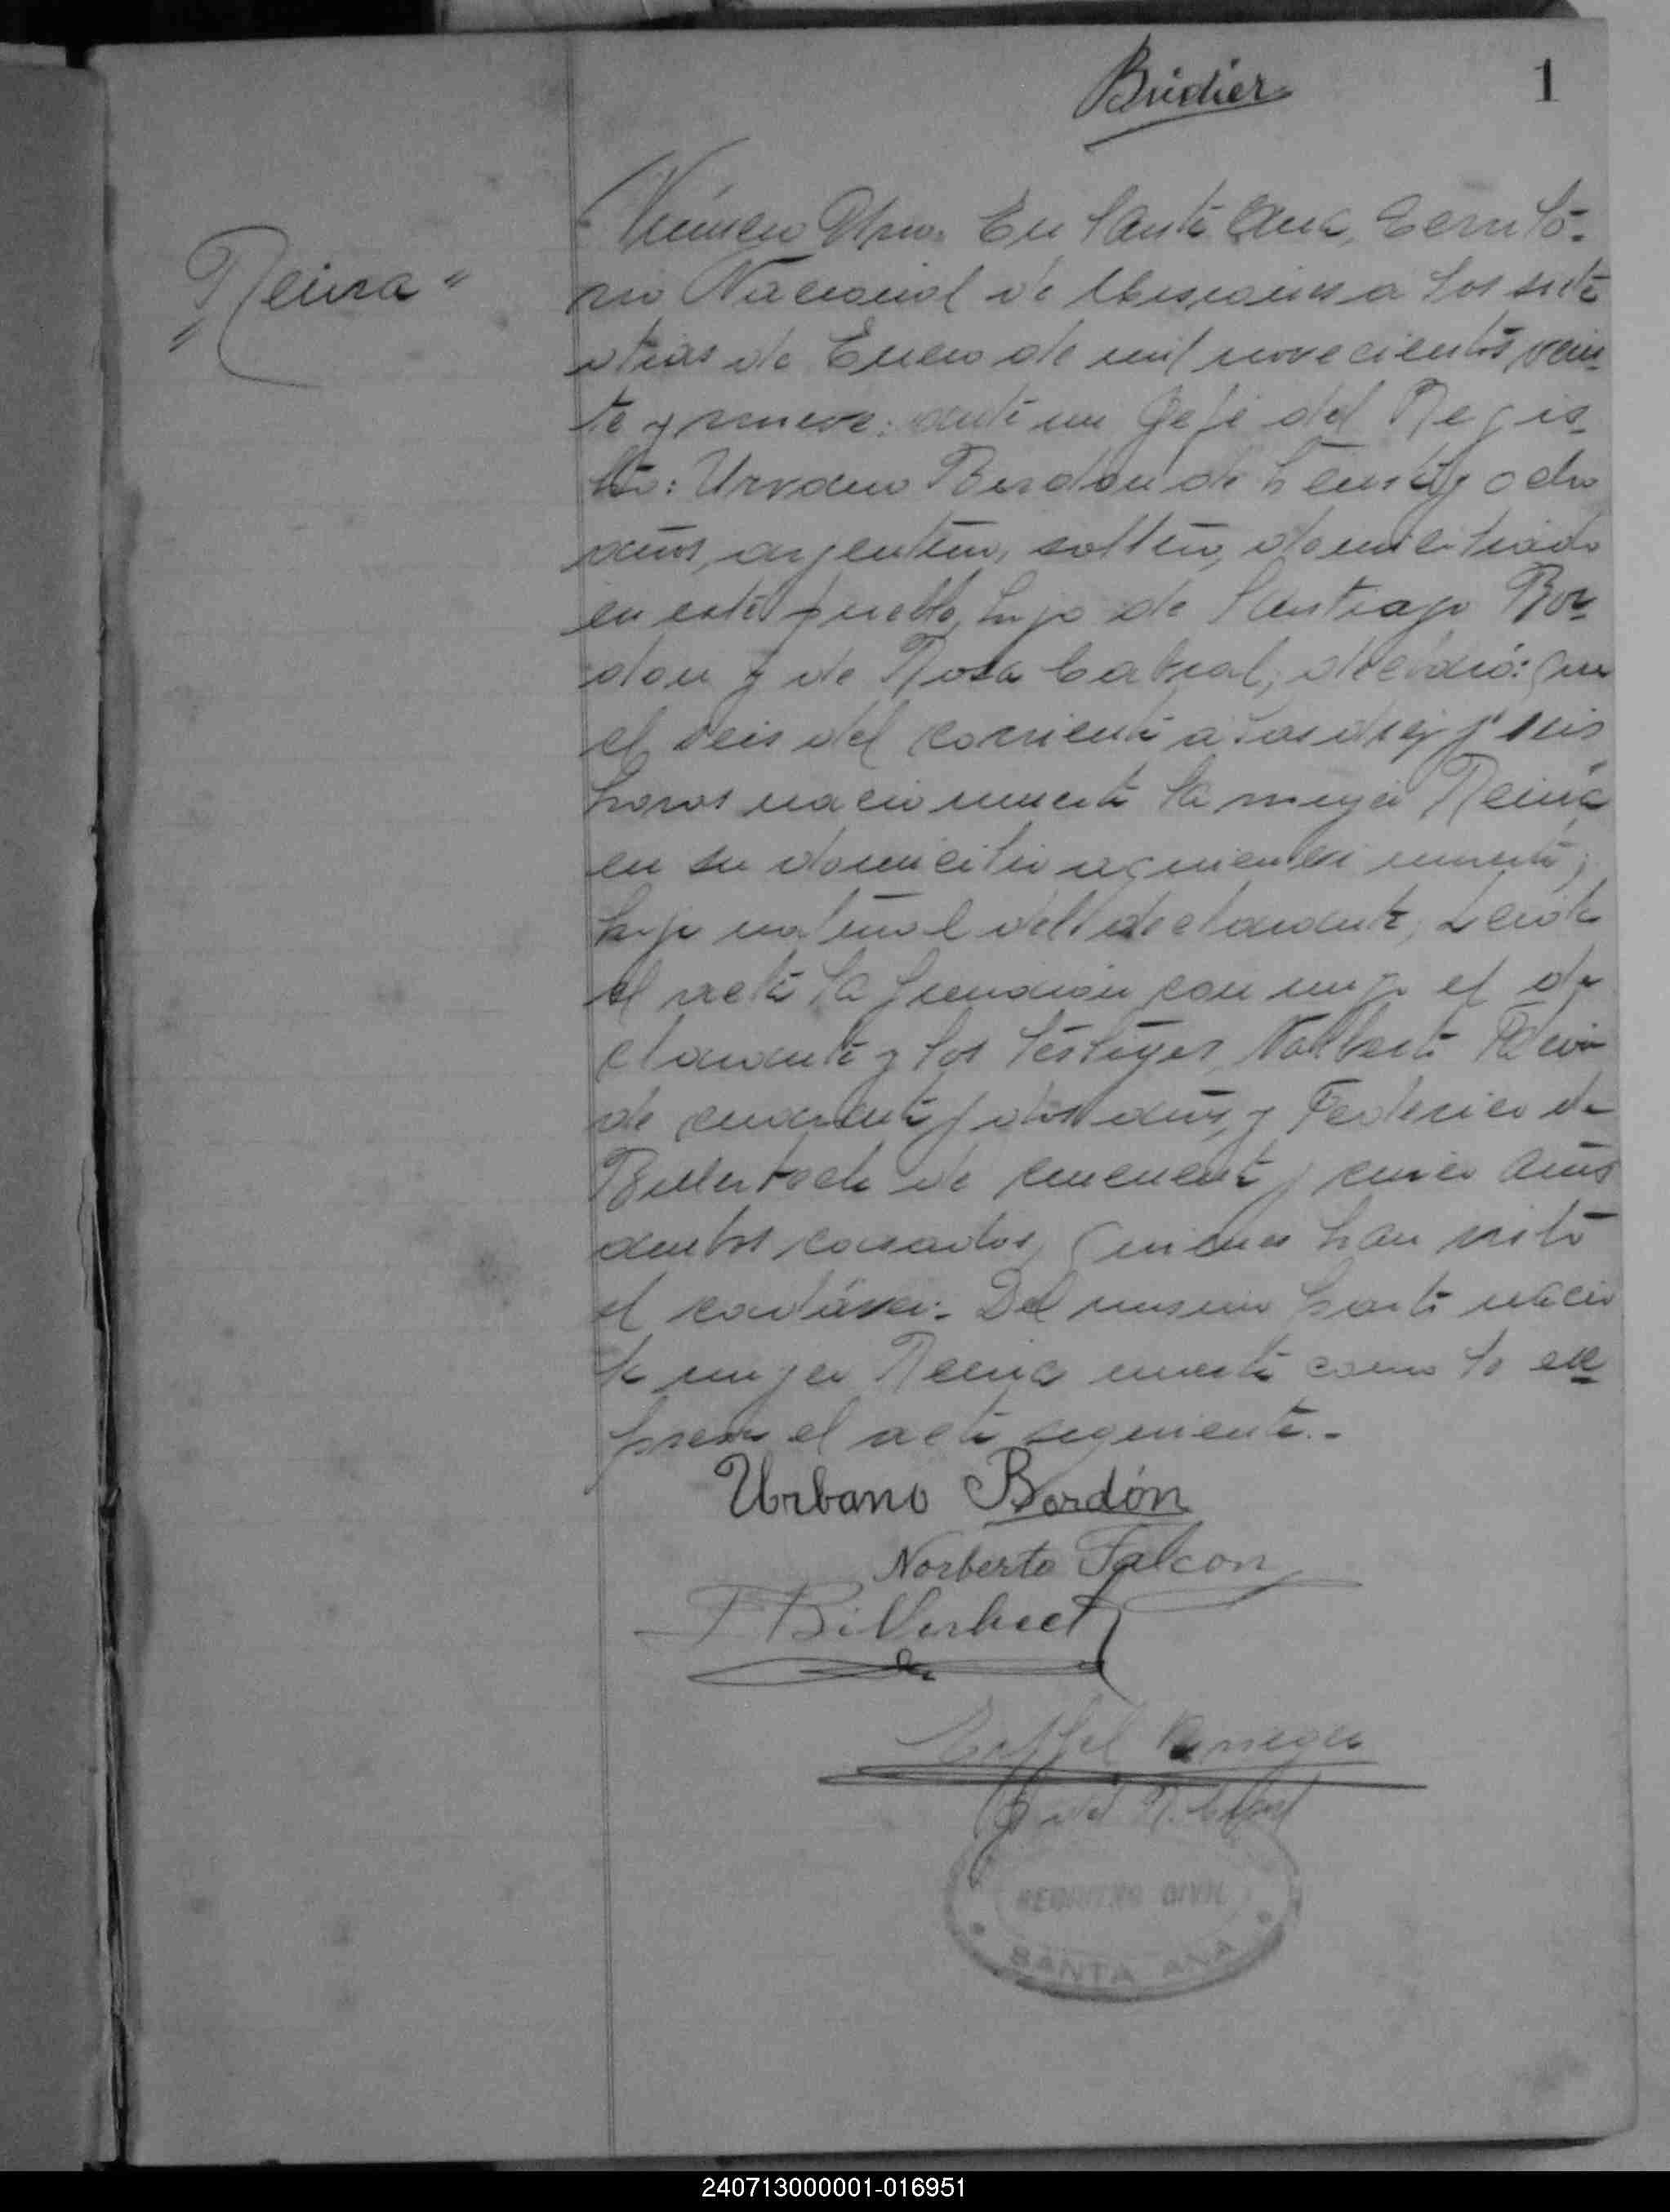 Bridier
1
"Reina"
Número Uno. En Santa Ana, Territo-
rio Nacional de Misiones a los siete
dias de Enero de mil novecientos vein-
te y nueve: ante mi Jefe del Regis-
tro: Urvano Bordon de treinta y ocho
años, argentino, soltero, domiciliado
en este pueblo, hijo de Santiago Bor-
don y de Rosa Cabral, declaró: Que
el seis del corriente a las diez y seis
horas nacio muerta la mujer Reina
en su domicilio
hija natural del declarante, Leida
el acta la firmaron conmigo el de-
clarante y los testigos, Norberto Falcon
de cuarenta y dos años, y Federico de
Billerbeck de cincuenta y cinco años
ambos casados, quienes han visto
el cadáver.- Del mismo parto nacio
la mujer Reina muerta como lo ex-
presa el acta siguiente.-
Urbano Bordón
Norberto Falcon
F Billerbeck
Jefe del R. Civil
REGISTRO CIVIL
SANTA ANA
240713000001-016951